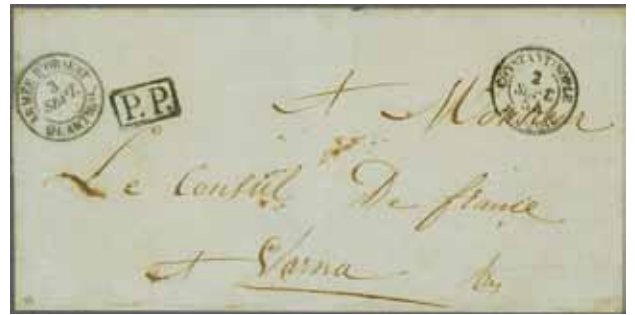 ARMÉE D'ORIENT
3
SEPT.
P.P.
CONSTANTINOPLE
2
SEPT.
54
A Monsieur
Le Consul De france
A Varna